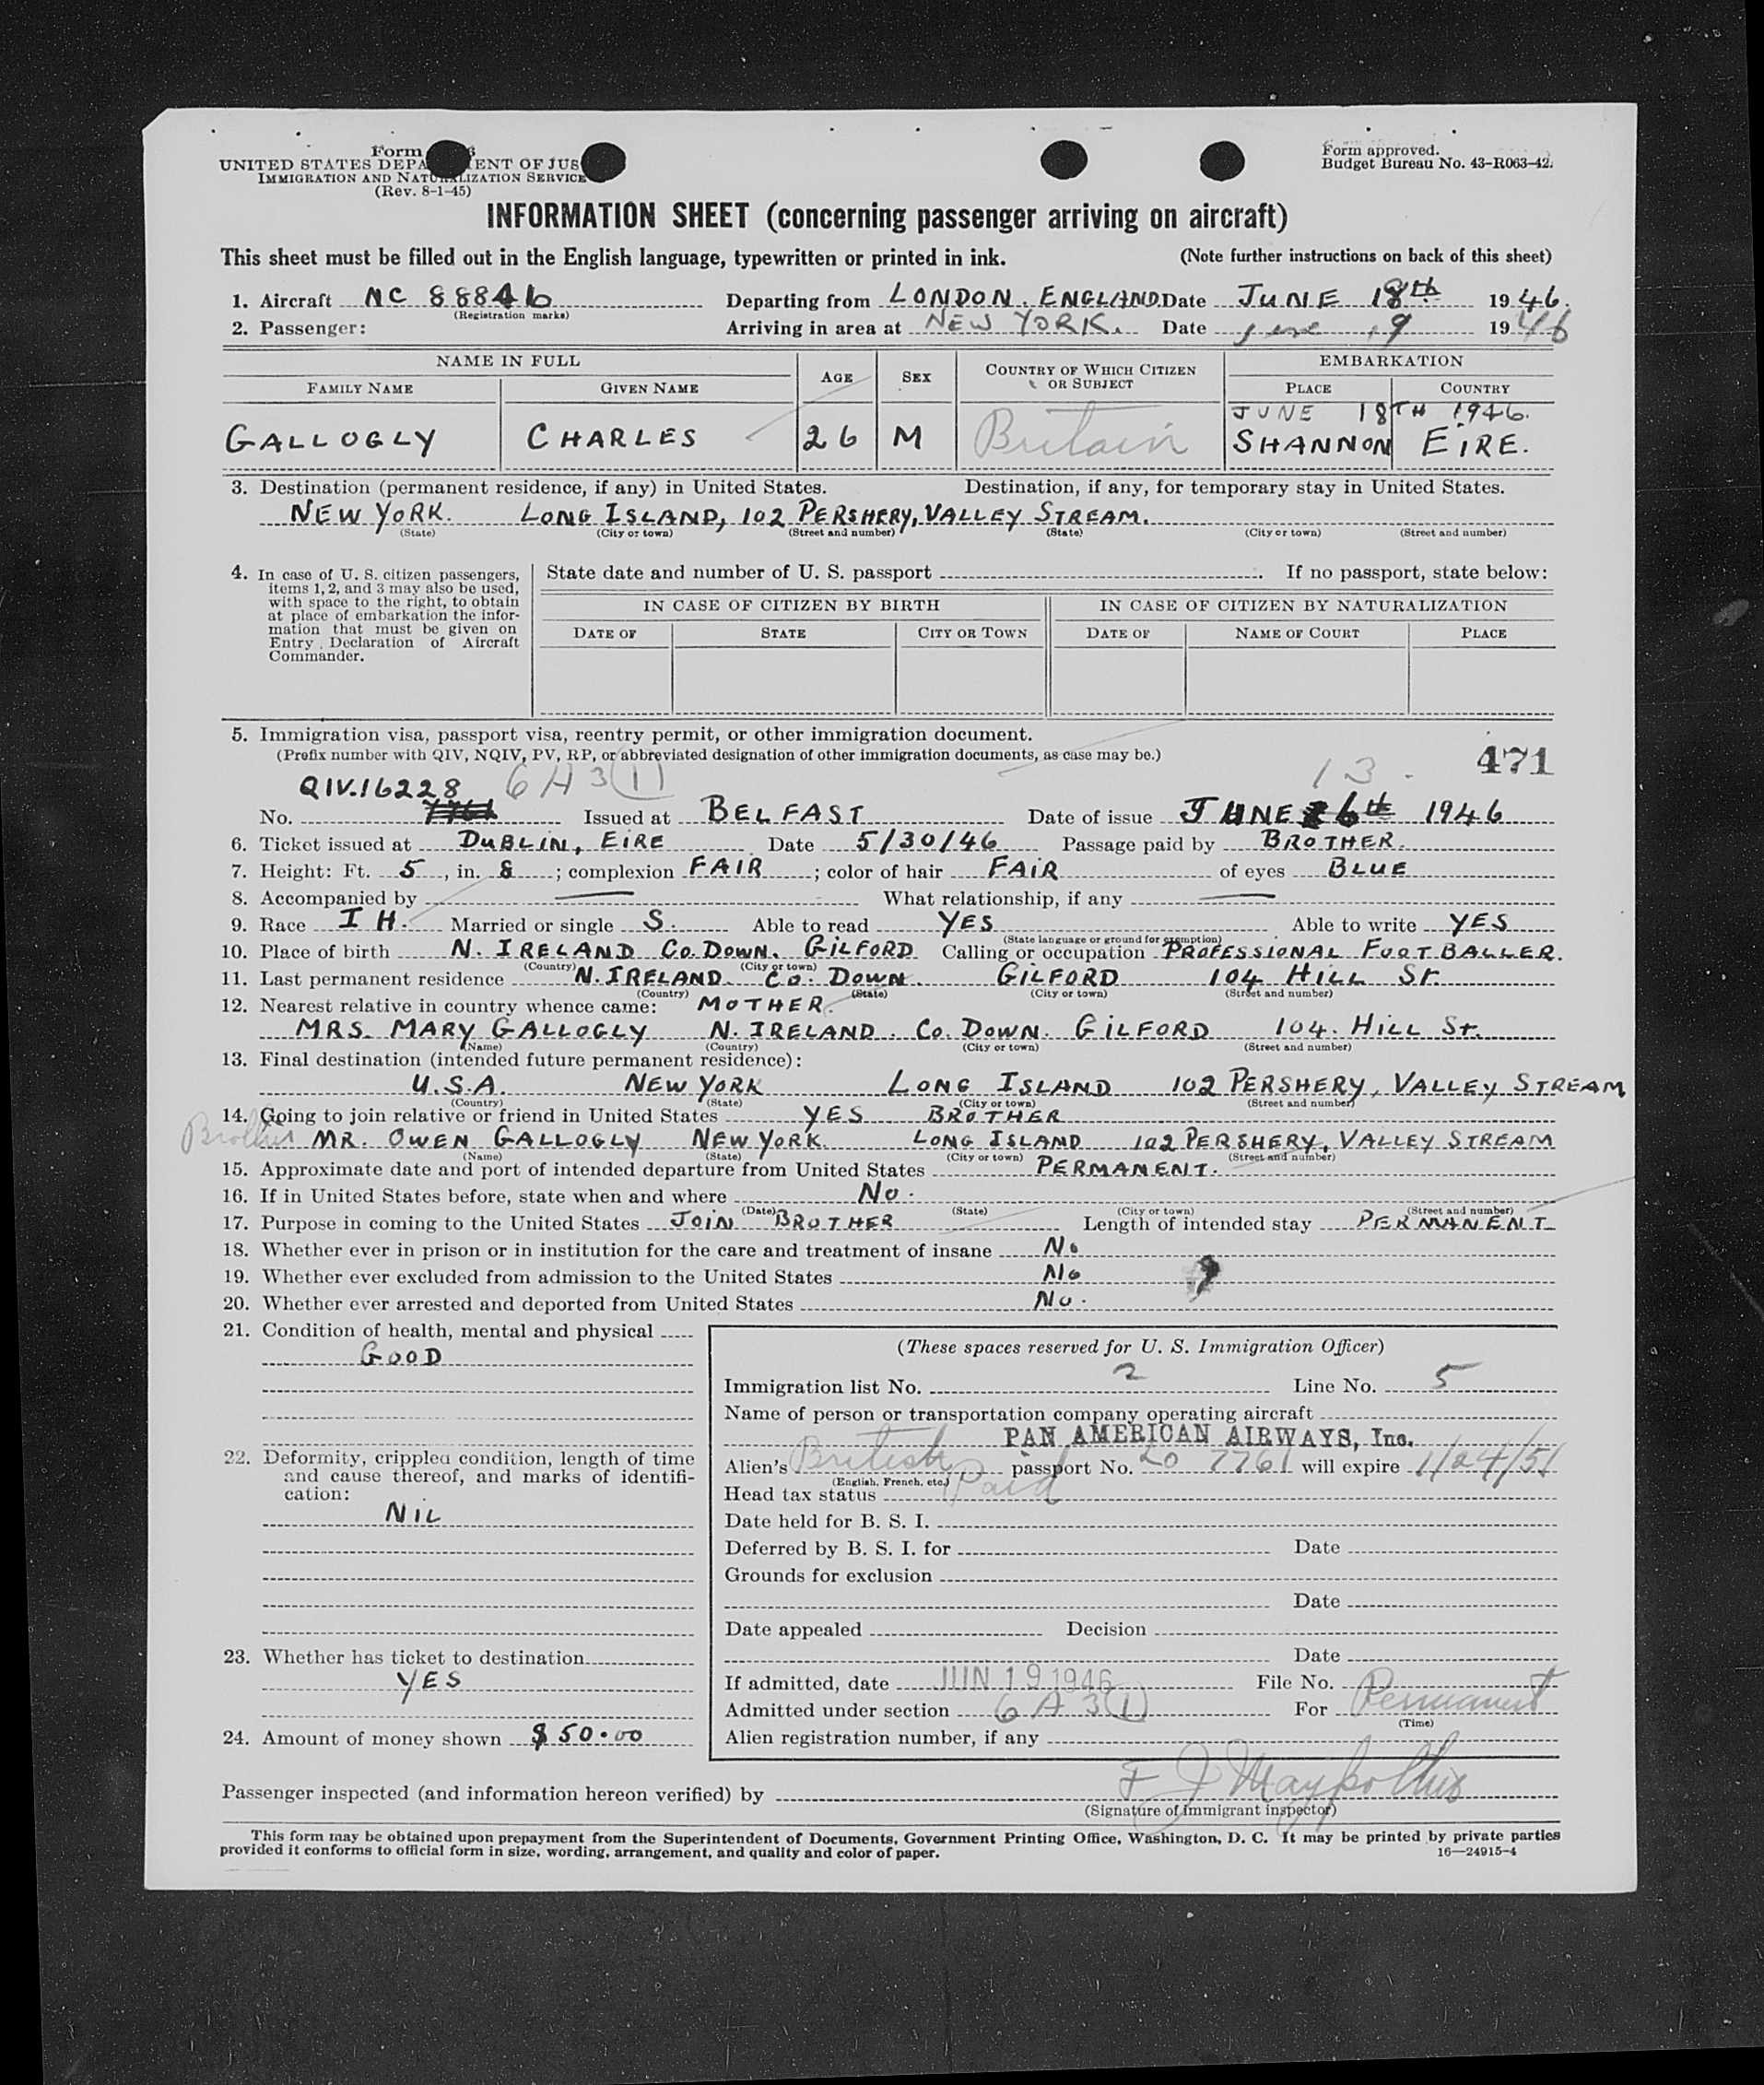 Form
UNITED STATES DEPA ENT OF JUS
IMMIGRATION AND NATURALIZATION SERVICE
(Rev. 8-1-45)
Form approved.
Budget Bureau No. 43-R063-42.
INFORMATION SHEET (concerning passenger arriving on aircraft)
This sheet must be filled out in the English language, typewritten or printed in ink. (Note further instructions on back of this sheet)
1. Aircraft NC 88846 Departing from LONDON. ENGLAND. Date JUNE 18th 1946.
(Registration marks)
2. Passenger: Arriving in area at NEW YORK. Date June 19 1946
NAME IN FULL AGE SEX COUNTRY OF WHICH CITIZEN OR SUBJECT EMBARKATION
FAMILY NAME GIVEN NAME PLACE COUNTRY
JUNE 18TH 1946.
GALLOGLY CHARLES 26 M Britain SHANNON EIRE.
3. Destination (permanent residence, if any) in United States. Destination, if any, for temporary stay in United States.
NEW YORK. LONG ISLAND, 102 PERSHERY, VALLEY STREAM.
(State) (City or town) (Street and number) (State) (City or town) (Street and number)
4. In case of U. S. citizen passengers, items 1, 2, and 3 may also be used, with space to the right, to obtain at place of embarkation the information that must be given on Entry Declaration of Aircraft Commander.
State date and number of U. S. passport . If no passport, state below:
IN CASE OF CITIZEN BY BIRTH IN CASE OF CITIZEN BY NATURALIZATION
DATE OF STATE CITY OR TOWN DATE OF NAME OF COURT PLACE
5. Immigration visa, passport visa, reentry permit, or other immigration document.
(Prefix number with QIV, NQIV, PV, RP, or abbreviated designation of other immigration documents, as case may be.) 471
QIV.16228 6 A 3 (1) 13.
No. 7761 Issued at BELFAST Date of issue JUNE 6th 1946
6. Ticket issued at DUBLIN, EIRE Date 5/30/46 Passage paid by BROTHER.
7. Height: Ft. 5, in. 8; complexion FAIR; color of hair FAIR of eyes BLUE
8. Accompanied by — What relationship, if any —
9. Race I H. Married or single S. Able to read YES Able to write YES
(State language or ground for exemption)
10. Place of birth N. IRELAND CO. DOWN. GILFORD Calling or occupation PROFESSIONAL FOOTBALLER.
(Country) (City or town)
11. Last permanent residence N. IRELAND CO. DOWN. GILFORD 104 HILL ST.
(Country) (State) (City or town) (Street and number)
12. Nearest relative in country whence came: MOTHER.
MRS. MARY GALLOGLY N. IRELAND. CO. DOWN. GILFORD 104. HILL ST.
(Name) (Country) (City or town) (Street and number)
13. Final destination (intended future permanent residence):
U.S.A. NEW YORK LONG ISLAND 102 PERSHERY, VALLEY STREAM
(Country) (State) (City or town) (Street and number)
14. Going to join relative or friend in United States YES BROTHER
Brother MR. OWEN GALLOGLY NEW YORK LONG ISLAND 102 PERSHERY, VALLEY STREAM
(Name) (State) (City or town) (Street and number)
15. Approximate date and port of intended departure from United States PERMANENT.
16. If in United States before, state when and where NO.
(Date) (State) (City or town) (Street and number)
17. Purpose in coming to the United States JOIN BROTHER Length of intended stay PERMANENT
18. Whether ever in prison or in institution for the care and treatment of insane NO
19. Whether ever excluded from admission to the United States NO
20. Whether ever arrested and deported from United States NO.
21. Condition of health, mental and physical
GOOD
22. Deformity, crippled condition, length of time and cause thereof, and marks of identification:
NIL
23. Whether has ticket to destination
YES
24. Amount of money shown $50.00
(These spaces reserved for U. S. Immigration Officer)
Immigration list No. 2 Line No. 5
Name of person or transportation company operating aircraft
PAN AMERICAN AIRWAYS, Inc.
Alien's British passport No. 20 7761 will expire 1/24/51
(English, French, etc.)
Head tax status Paid
Date held for B. S. I.
Deferred by B. S. I. for Date
Grounds for exclusion
Date
Date appealed Decision
Date
If admitted, date JUN 19 1946 File No.
Admitted under section 6 A 3 (1) For Permanent
(Time)
Alien registration number, if any
Passenger inspected (and information hereon verified) by F J
(Signature of immigrant inspector)
This form may be obtained upon prepayment from the Superintendent of Documents, Government Printing Office, Washington, D. C. It may be printed by private parties
provided it conforms to official form in size, wording, arrangement, and quality and color of paper. 16—24915-4